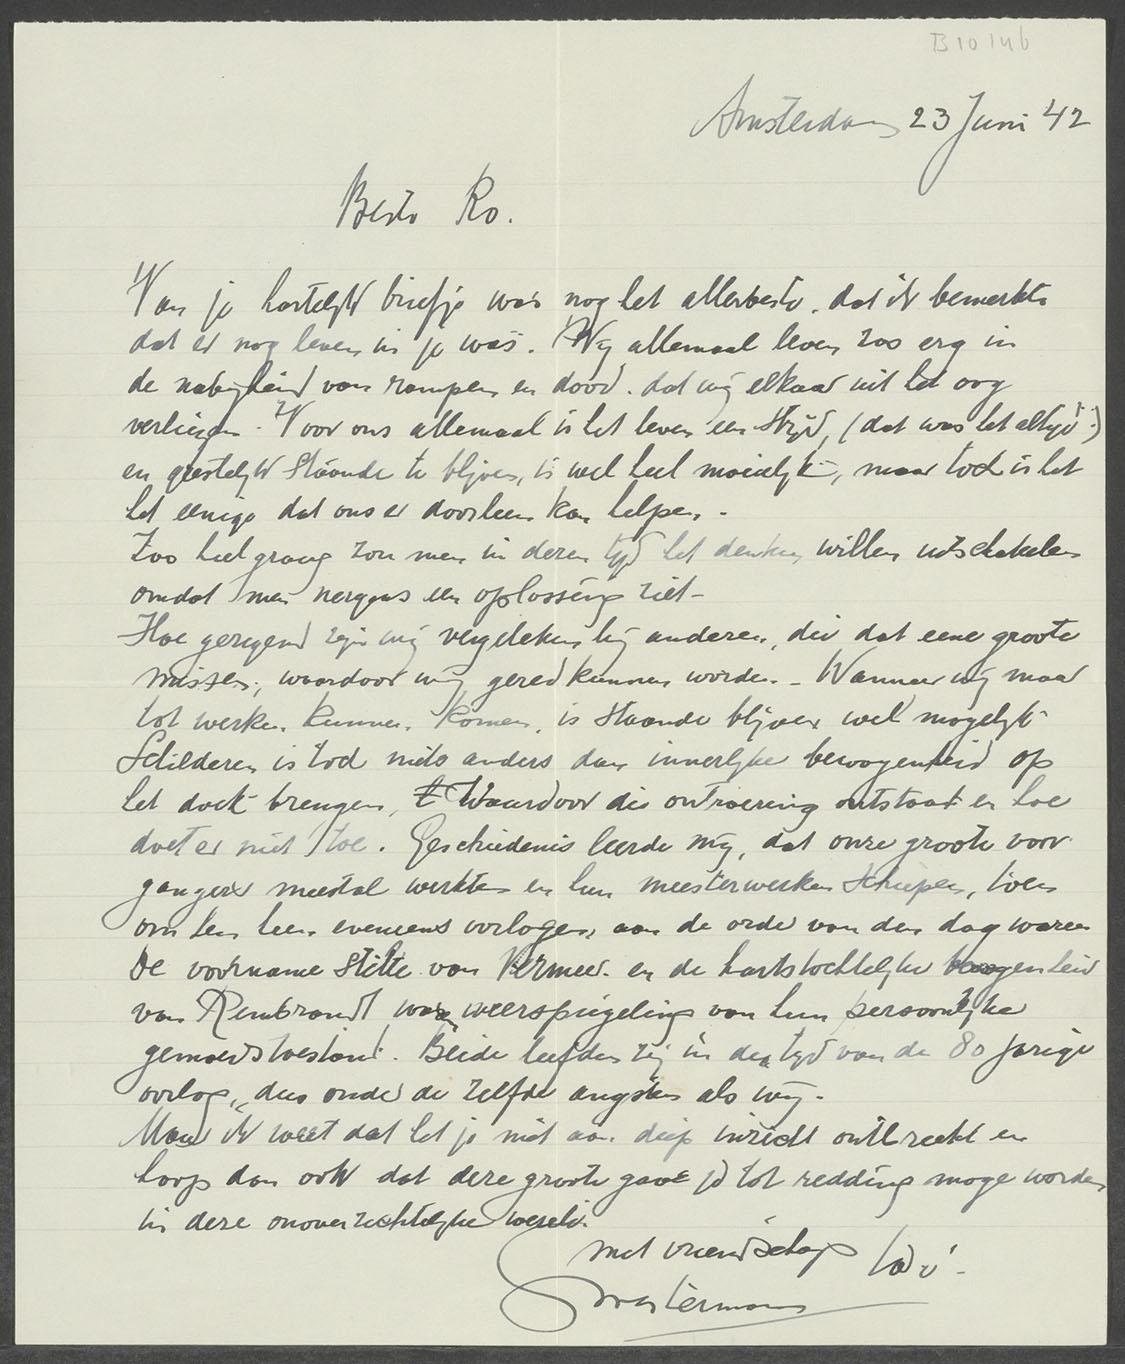 B10146
Amsterdam 23 Juni '42
Beste Ro.
Van je hartelijk briefje was nog het allerbeste, dat ik bemerkte
dat er nog leven in je was. Wij allemaal leven zoo erg in
de nabijheid van rampen en dood, dat wij elkaar uit het oog
verliezen. Voor ons allemaal is het leven een strijd, (dat was het altijd!)
en geestelijk staande te blijven, is wel heel moeielijk, maar toch is het
het eenige dat ons er doorheen kan helpen.
Zoo heel graag zou men in dezen tijd het denken willen uitschakelen
omdat men nergens een oplossing ziet.
Hoe gezegend zijn wij vergeleken bij anderen, die dat eene groote
missen, waardoor wij gered kunnen worden. Wanneer wij maar
tot werken kunnen komen, is staande blijven wel mogelijk
Schilderen is toch niets anders dan innerlijke bewogenheid op
het doek brengen, Waardoor die ontroering ontstaat en hoe
doet er niet toe. Geschiedenis leerde mij, dat onze groote voor
gangers meestal werkten en hun meesterwerken schiepen, toen
om hen heen eveneens oorlogen aan de orde van den dag waren
De voorname stilte van Vermeer en de hartstochtelijke bewogenheid
van Rembrandt was weerspiegeling van hun persoonlijke
gemoedstoestand. Beide leefden zij in den tijd van de 80 jarige
oorlog, dus onder de zelfde angsten als wij.
Maar ik weet dat het je niet aan diep inzicht ontbreekt en
hoop dan ook dat deze groote gave je tot redding moge worden
in deze onoverzichtelijke wereld.
met vriendschap